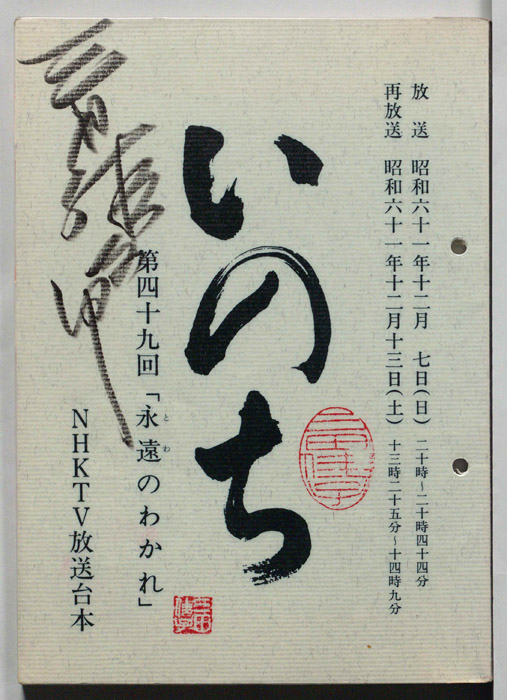 放　送　昭和六十一年十二月　七日(日)　二十時～二十時四十四分
再放送　昭和六十一年十二月十三日(土)　十三時二十五分～十四時九分
いのち
第四十九回「永遠のわかれ」
とわ
NHKTV放送台本